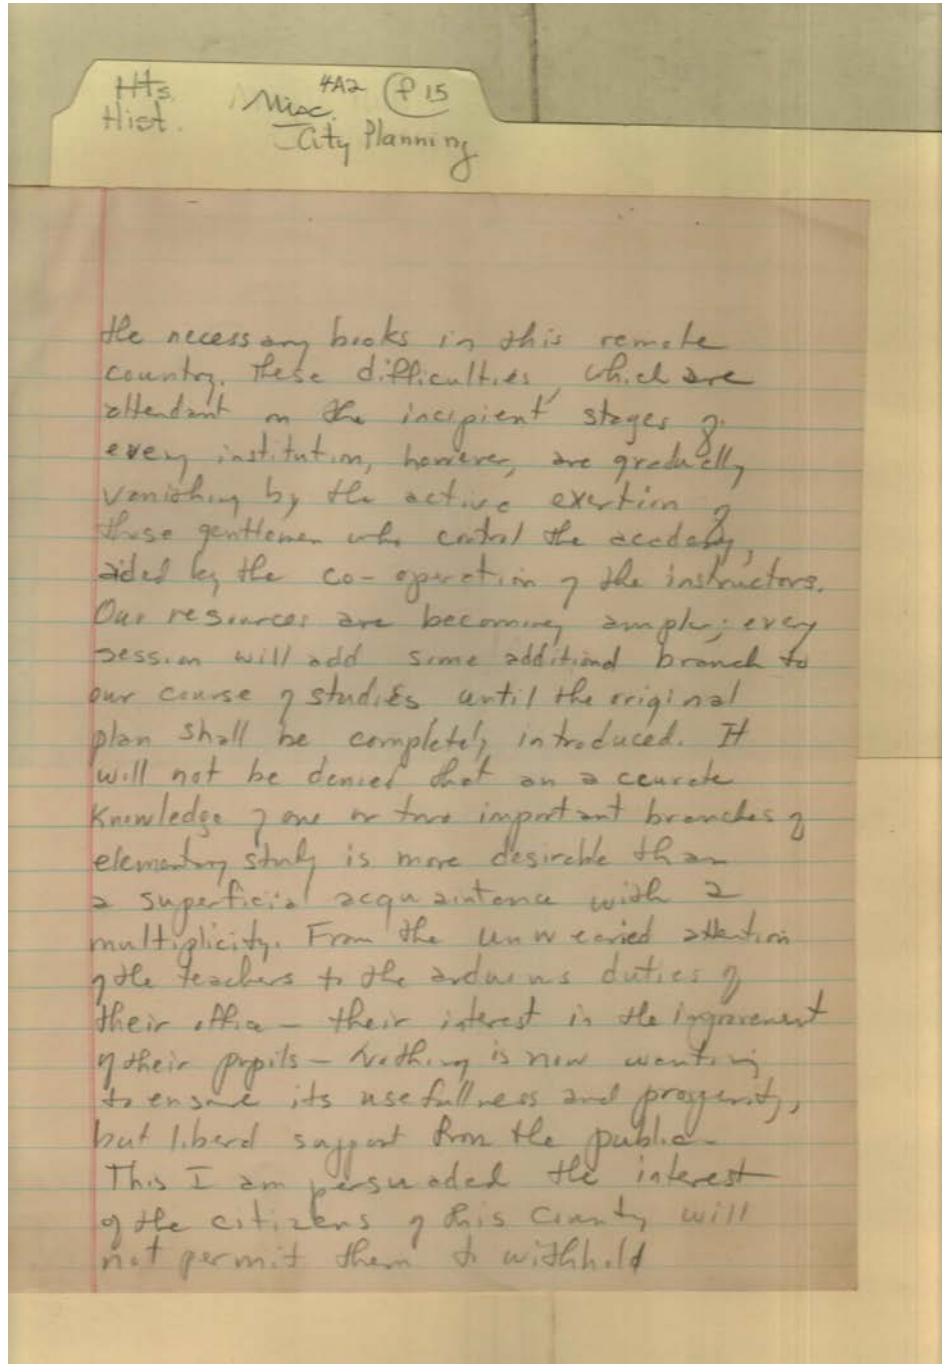 Hts.
Hist.
4A2
P 15
Misc.
City Planning
the necessary books in this remote
country. These difficulties, which are
attendant on the incipient stages of
every institution, however, are gradually
vanishing by the active exertion of
those gentlemen who control the academy,
aided by the co-operation of the instructors.
Our resources are becoming ample; every
session will add some additional branch to
our course of studies until the original
plan shall be completely introduced. It
will not be denied that an accurate
knowledge of one or two important branches of
elementary study is more desirable than
a superficial acquaintance with a
multiplicity. From the unwearied attention
of the teachers to the arduous duties of
their office - their interest in the improvement
of their pupils - nothing is now wanting
to ensure its usefullness and prosperity,
but liberal support from the public -
This I am persuaded the interest
of the citizens of this County will
not permit them to withhold